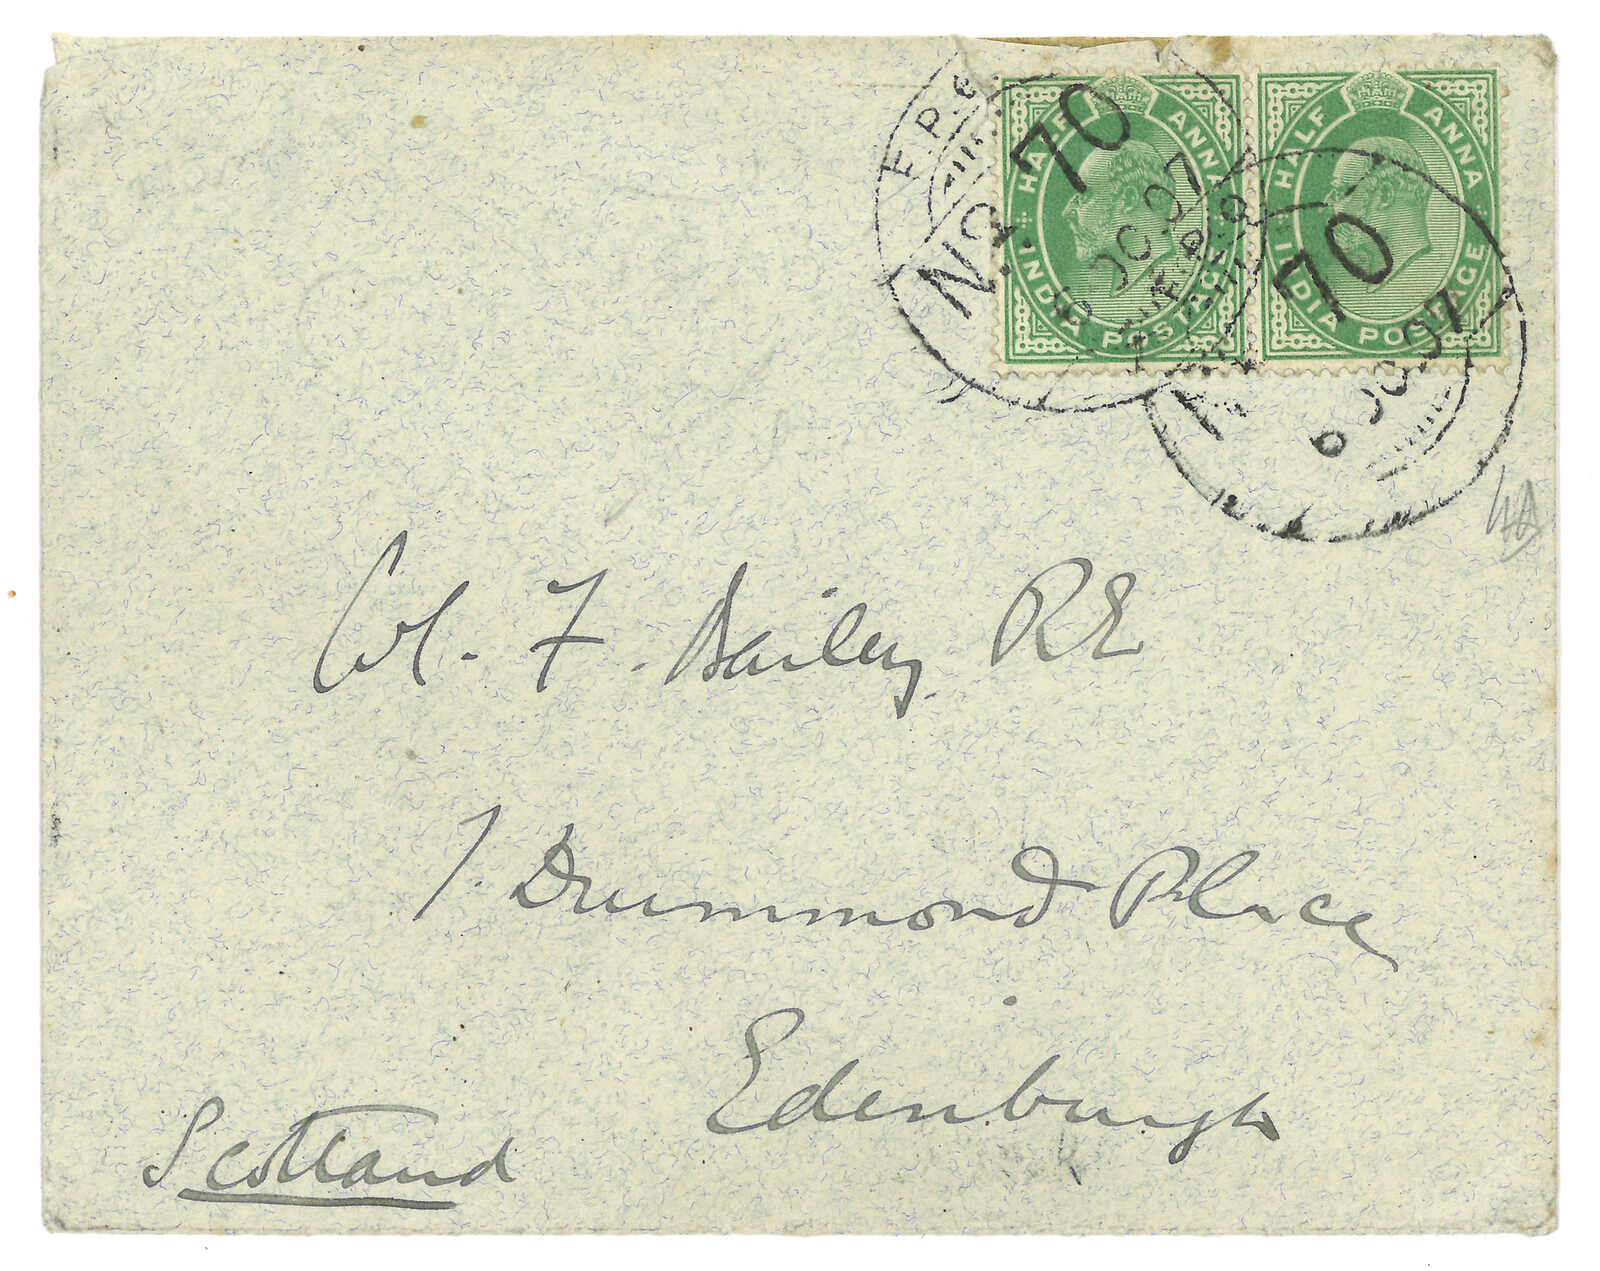 HALF ANNA
INDIA POSTAGE
HALF ANNA
INDIA POSTAGE
F.P.O.
No. 70
6 OC 07
70
6 OC 07
Col. F. Bailey RE
7. Drummond Place
Edenburgh
Scotland